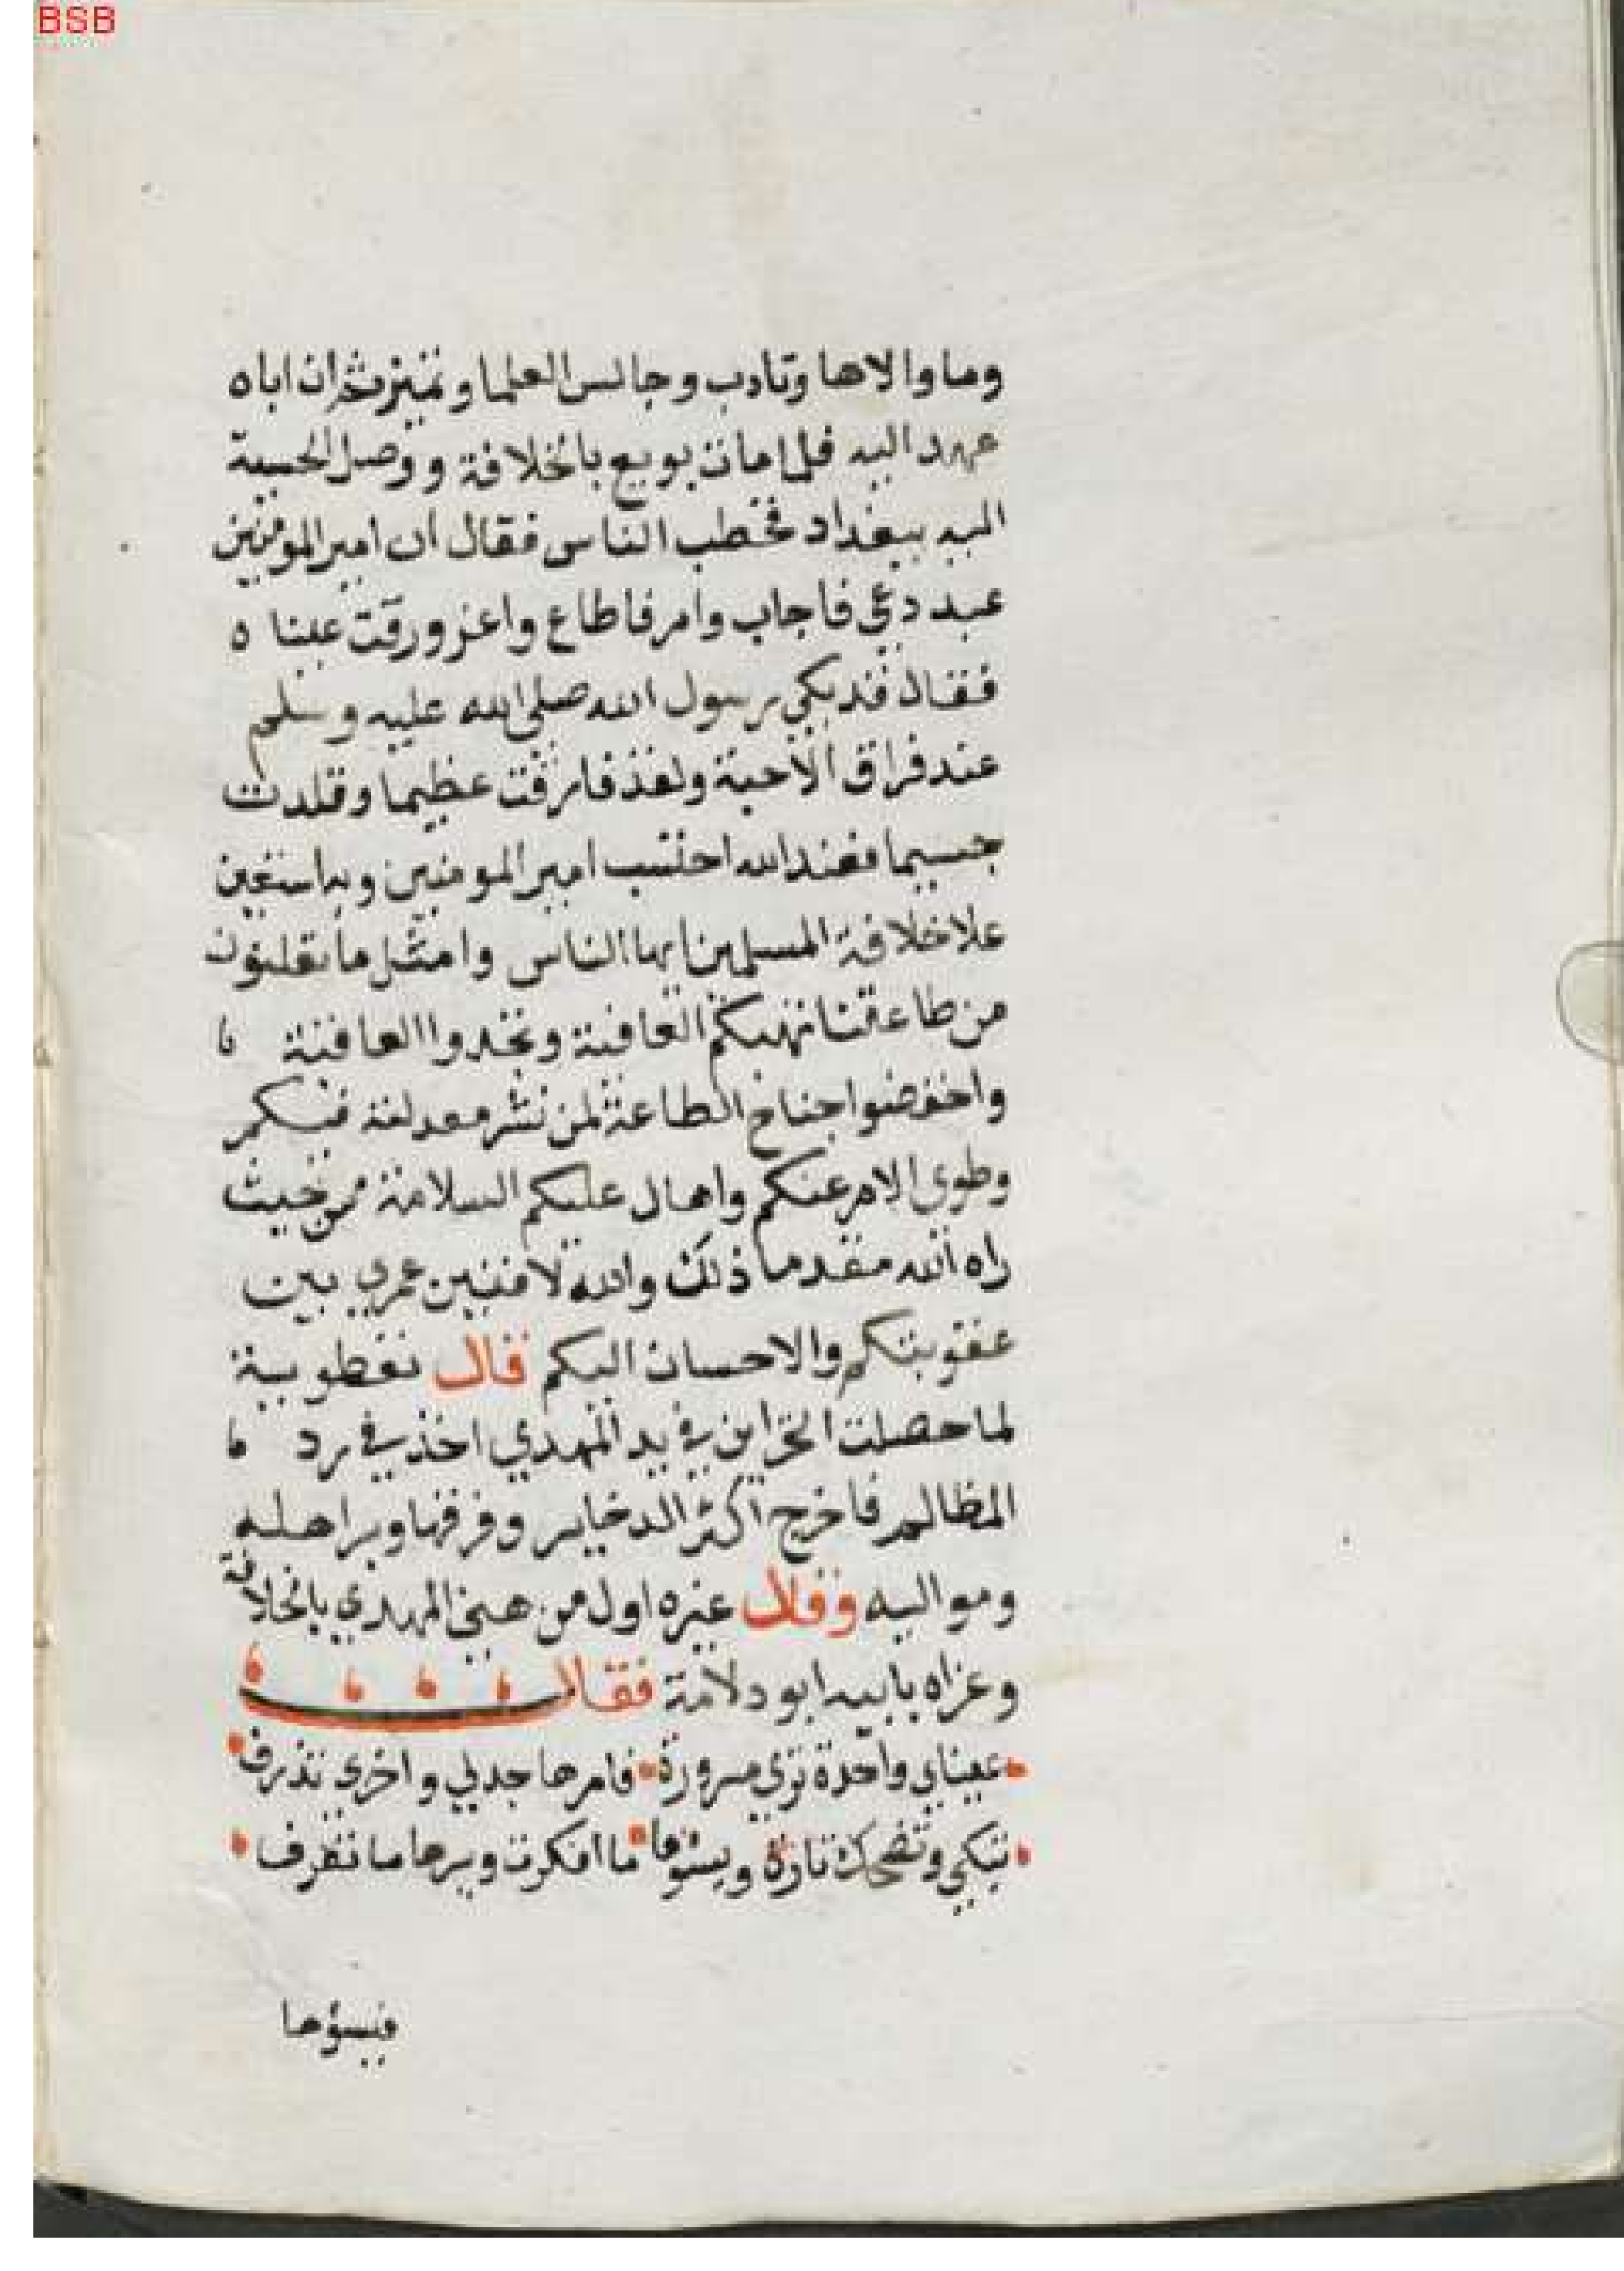 BSB
وما والاها وتادب وجالس العلما وتميز ثم ان اباه
عهد اليه فلما مات بويع بالخلافة ووصل الحسبة
اليه ببغداد فخطب الناس فقال ان امير المومنين
عبد دعي فاجاب وامر فاطاع واغرورقت عيناه
فقال قد بكي رسول الله صلى الله عليه وسلم
عند فراق الاحبة ولقد فارقت عظيما وقلدت
جسيما فعند الله احتسب امير المومنين وبه استعين
علا خلافة المسلمين ايها الناس وا مثل ما تعلنون
من طاعتنا نهبكم العافية وتحمدوا العاقبة
واخفضوا جناح الطاعة لمن نشر معدلته فيكم
وطوى الامر عنكم واهال عليكم السلامة من حيث
راه الله مقدما ذلك والله لافنين عمري بين
عقوبتكم والاحسان اليكم قال نفطويه
لما حصلت الخزاين في يد المهدي اخذ في رد
المظالم فاخرج اكثر الدخاير وفرقها وبر اهله
ومواليه وقال غيره اول من هنى المهدي بالخلافة
وعزاه بابيه ابو دلامة فقال
عيناي واحدة تري مسرورة فامرها جدلي واخرى تذرف
تبكي وتضحك تارة ويسوها ما انكرت ويسرها ما تعرف
فيسؤها